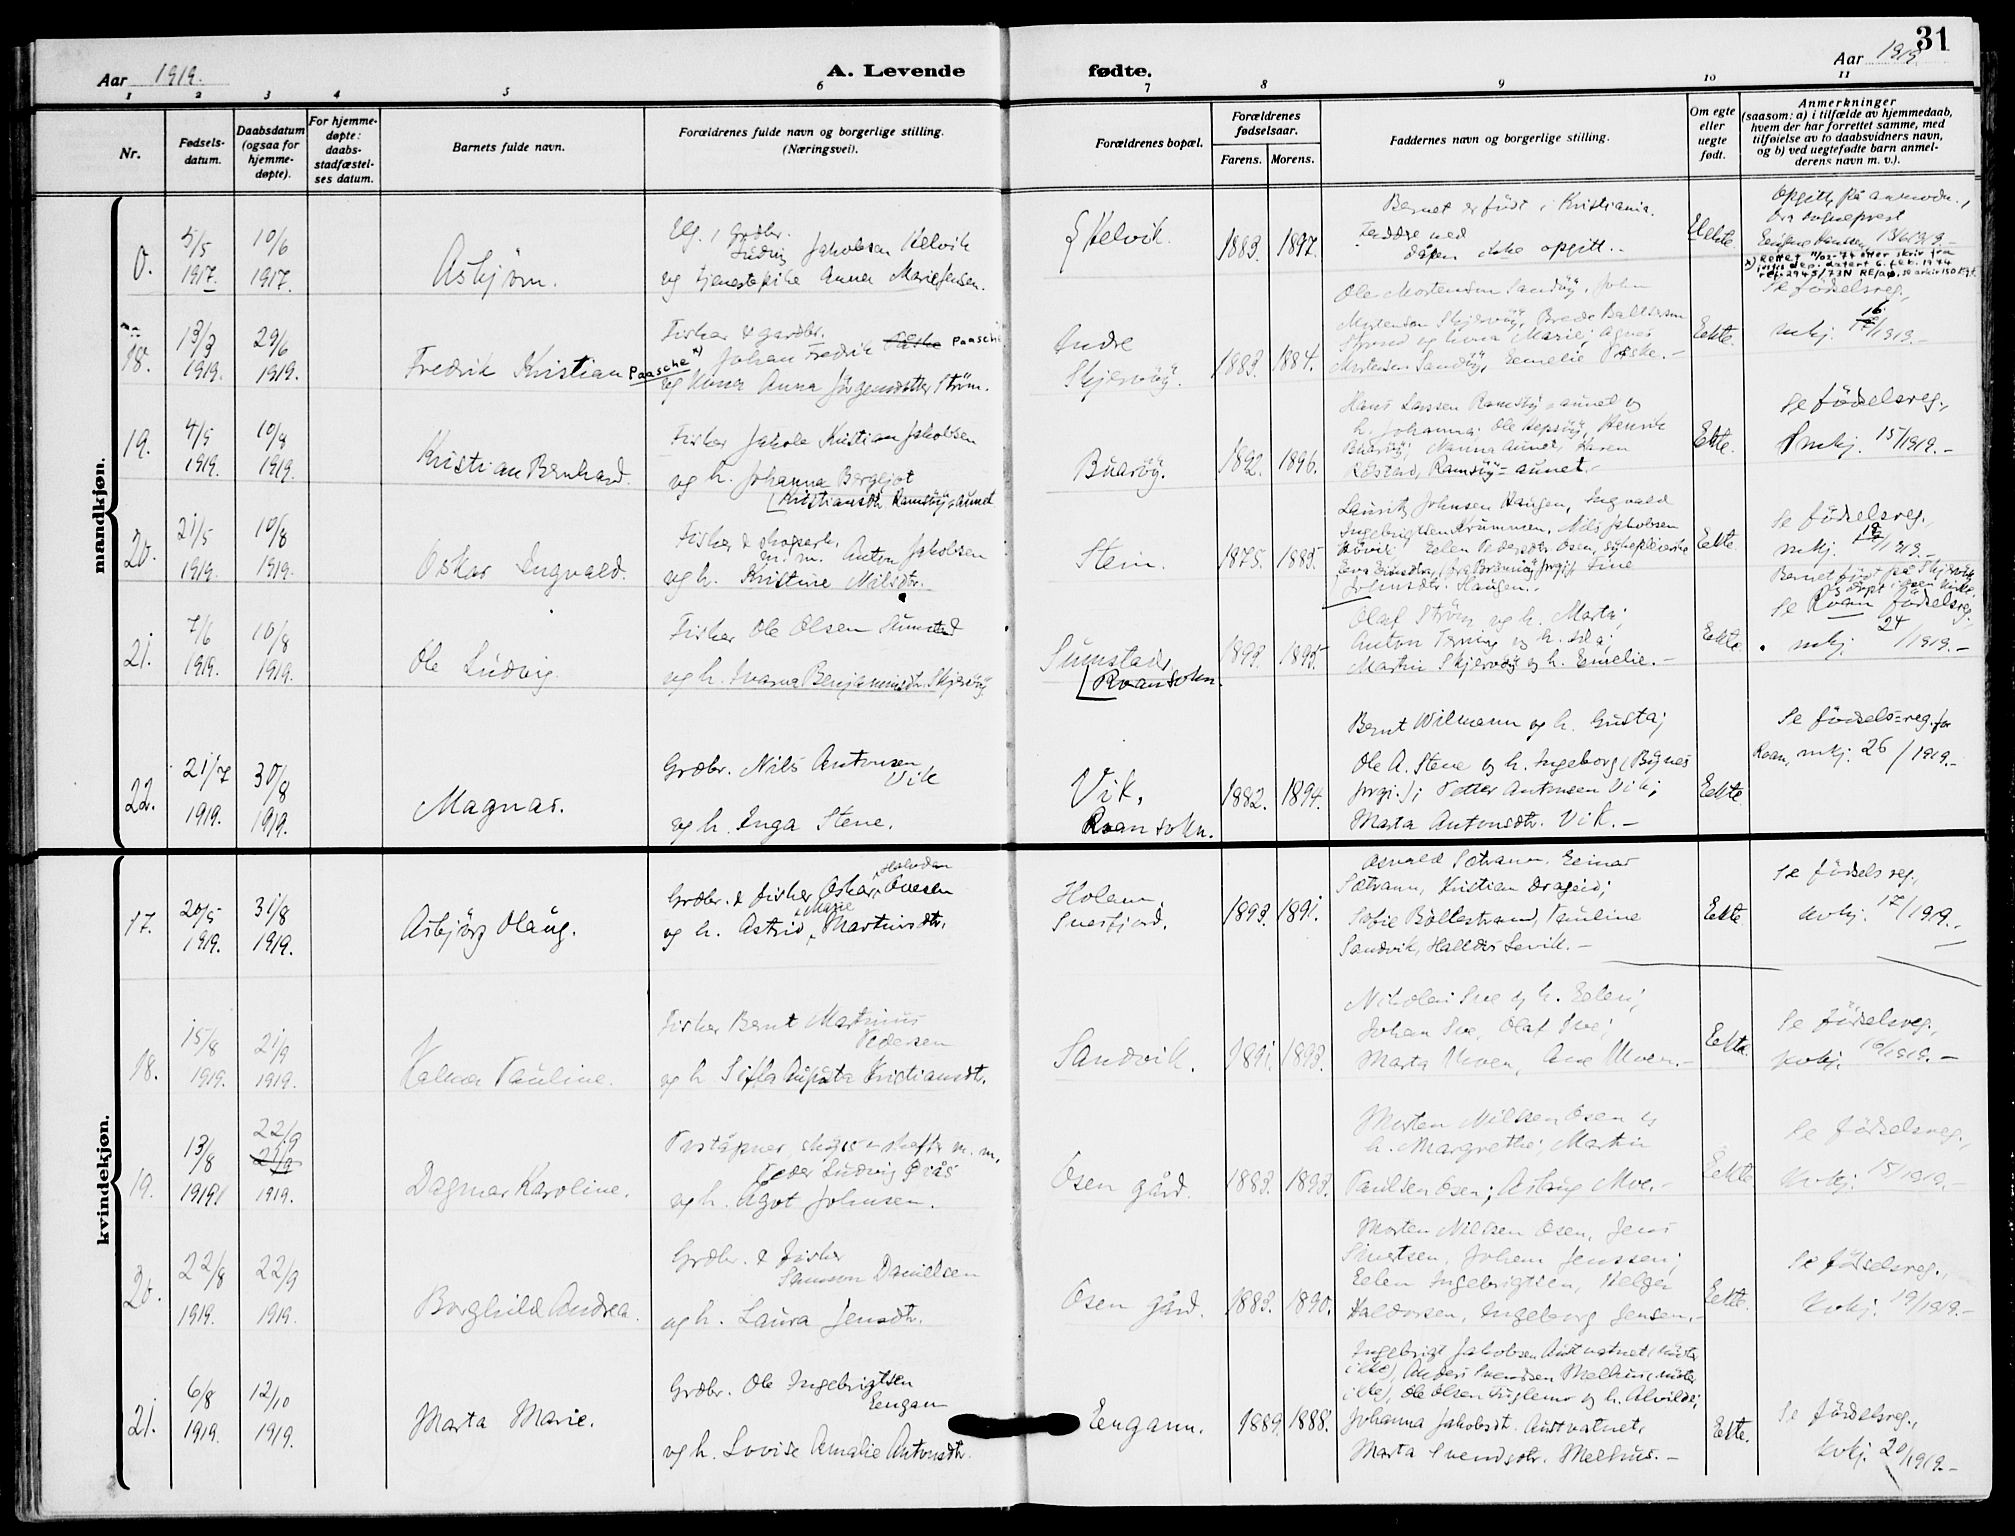 31
Aar 1919.
A. Levende fødte.
Aar 1919
1 2 3 4 5 6 7 8 9 10 11
Nr.
Fødsels-
datum.
Daabsdatum
(ogsaa for
hjemme-
døpte).
For hjemme-
døpte:
daabs-
stadfæstel-
ses datum.
Barnets fulde navn.
Forældrenes fulde navn og borgerlige stilling.
(Næringsvei).
Forældrenes bopæl.
Forældrenes
fødselsaar.
Farens. Morens.
Faddernes navn og borgerlige stilling.
Om egte
eller
uegte
født.
Anmerkninger
(saasom: a) i tilfælde av hjemmedaab,
hvem der har forrettet samme, med
tilføielse av to daabsvidners navn,
og b) ved uegtefødte barn anmel-
derens navn m. v.).
mandkjøn.
0.
5/5
1917
10/6
1917.
Asbjørn.
Elg. , Grdbr.
Ludvig Jakobsen Helvik
og tjenestepike Anna Marie Jensen.
Helvik.
1883. 1897.
Barnet er født i Kristiania.
Faddre ved
dåpen ikke opgitt.
Uekte.
Opgitt på anmodn.
fra sogneprest
Hansen 13/6 1919.-
18.
13/3
1919.
29/6
1919.
Fredrik Kristian Paasche
Fisker & gardbr.
x) Johan Fredrik Påske Paasche
og Anna Jørgensdatter Strøm.
Andre
Skjervøy.
1883. 1884.
Ole Mortensen Sandøy, John
Mortensen Skjervøy, Brede Baltsersen
Strand og kona Marie; Agnes
Mortensen Sandøy, Emelie Påske.-
Eekte.
Se fødselsreg.,
mkj. 16/1919.-
19.
4/5
1919.
10/8
1919.
Kristian Bernhard.
Fisker Jakob Kristian Jakobsen
og h. Johanna Bergljot
Kristiansdtr. Ramsøy-aunet
Buarøy.
1892. 1896.
Hans Larsen Ramsøy-aunet og
h. Johanna; Ole Hepsøy, Henrik
Buarøy; Nanna Aunet, Karen
Rdstad, Ramsøy-aunet.-
Ekte.
Se fødselsreg.,
mkj. 15/1919.-
20.
21/5
1919.
10/8
1919.
Oskar Ingvald.
Fisker & skogsarb.
m. m. Anton Jakobsen
og h. Kristine Nilsdtr.
Stein.
1875. 1885.
Lauritz Johnsen Haugen, Ingvald
Ingebrigtsen Krummen, Nils Jakobsen
Høvik; Eelen Pedersdtr. Osen, sykepleierske
Johnsdtr. Haugen.-
Eekte
Se fødselsreg.
mkj. 18/1919.-
21.
7/6
1919.
10/8
1919.
Ole Ludvig.
Fisker Ole Olsen Sumstad
og h. Ivarna Benjaminsdtr. Skjervøy
Sumstad,
Roan sokn.
1893. 1895
Olaf Strøm og h. Marta;
Anton Terning og h. Ida;
Martin Skjervøy og h. Emelie.-
Eekte
Barnet født på Skjervøy
& døpt i Osen kirke.
Se Roan fødselsreg.
mkj. 24/1919.-
22.
21/7
1919.
30/8
1919.
Magnar.
Grdbr. Nils Antonsen
Vik
og h. Inga Stene.
Vik,
Roan sokn.
1882. 1894.
Bernt Wilmann og h. Gusta;
Ole A. Stene og h. Ingeborg (Bygnes
); Petter Antonsen Vik;
Marta Antonsdtr. Vik.-
Eekte
Se fødsels-reg. for
Roan, mkj. 26/1919.-
kvindekjøn.
17.
20/5
1919.
31/8
1919.
Asbjørg Olaug.
Grdbr. & fisker Oskar Halvdan Ovesen
og h. Astrid Marie Martinsdtr.
Holem,
Svesfjord.
1893. 1891.
Asvald Sætrann, Eeinar
Sætrann, Kristian Drageid;
Sofie Bøllestrand, Pauline
Sandvik, Halldis Levik.-
Eekte
Se fødselsreg.,
kvkj. 17/1919.-
18.
15/8
1919.
21/9
1919.
Halma Pauline.
Fisker Bernt Martinus
Pedersen
og h. Sifla Augusta Kristiansdtr.
Sandvik.
1891. 1893.
Nikolai Sve og h. Eelen;
Johan Sve, Olaf Sve;
Marta Moen, Ane Moen.-
Eekte.
Se fødselsreg.,
kvkj. 16/1919.-
19.
13/8
1919.
22/9
21/9
1919.
Dagmar Karoline.
Poståpner, m. m.
Peder Ludvig
og h. Ågot Johnsen.
Osen gård.
1883. 1893.
Morten Nilssen Osen og
h. Margrethe; Martin
Paulsen Osen; Astrig Moe.-
Eekte
Se fødselsreg.,
kvkj. 15/1919.-
20.
22/8
1919.
22/9
1919.
Borghild Andrea.
Grdbr. & fisker
Samson Danielsen
og h. Laura Jensdtr.
Osen gård.
1883. 1890.
Morten Nilssen Osen, Jens
Sivertsen, Johan Jenssen;
Eelen Ingebrigtsen, Helga
Haldorsen, Ingeborg Jensen.-
Eekte.
Se fødselsreg.,
kvkj. 19/1919.-
21.
6/8
1919.
12/10
1919.
Marta Marie.
Grdbr. Ole Ingebrigtsen
Eengan
og h. Lovise Amalie Antonsdtr.
Eengann.
1889. 1888.
Ingebrigt Jakobsen Austvatnet (møter
ikke), Anders Svendsen Melhus (møter
ikke), Ole Olsen og h. Alvilde;
Johanna Jakobsdt. Austvatnet,
Marta Svendsdtr. Melhus.-
Eekte.
Se fødselsreg.,
kvkj. 20/1919.-